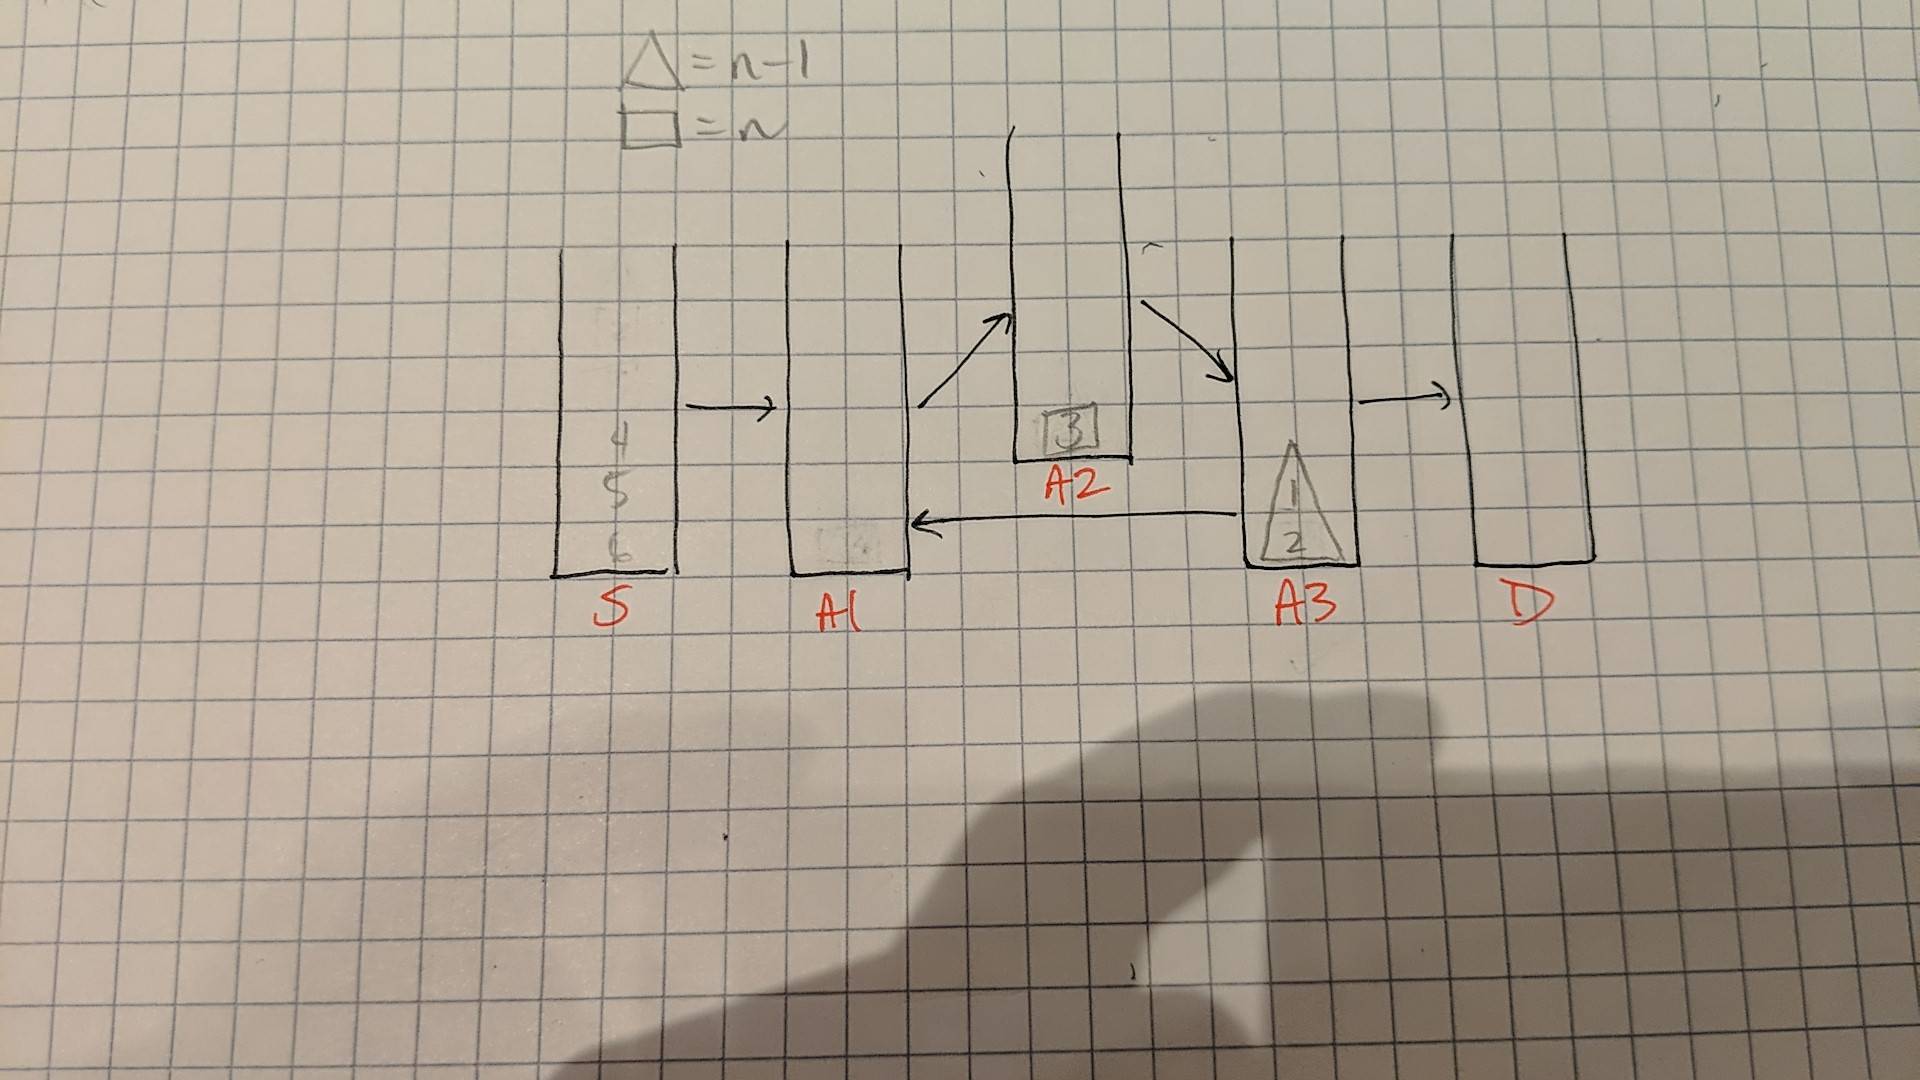 △ = n-1
□ = n
4
5
6
S
A1
3
A2
1
2
A3
D